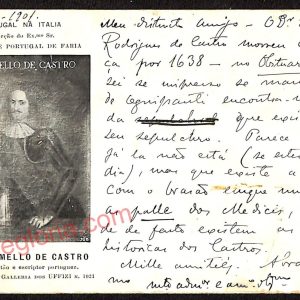 -1901.
UGAL NA ITALIA
rção do Ex.mo Sr.
E PORTUGAL DE FARIA
MELLO DE CASTRO
MELLO DE CASTRO
tão e escriptor portuguez.
GALLERIA DOS UFFIZI N. 1921
Meu distincto amigo — O Dr
Rodrigues de Castro morreu
ça por 1638 — no Obituar
sei se impresso se man
encontra-
da que exis
seu sepulchro. Parece
já lá não está (se este
dia), mas que existe a
com o brazão em que
palle dos Medicis,
de facto existem as
historicas dos Castros.
Mille amitiés. Abra